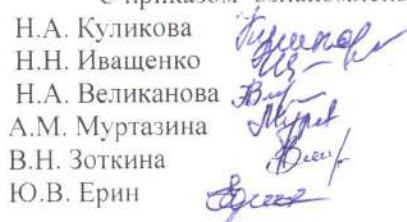 С приказом ознакомлены
Н.А. Куликова
Н.Н. Иващенко
Н.А. Великанова
А.М. Муртазина
В.Н. Зоткина
Ю.В. Ерин